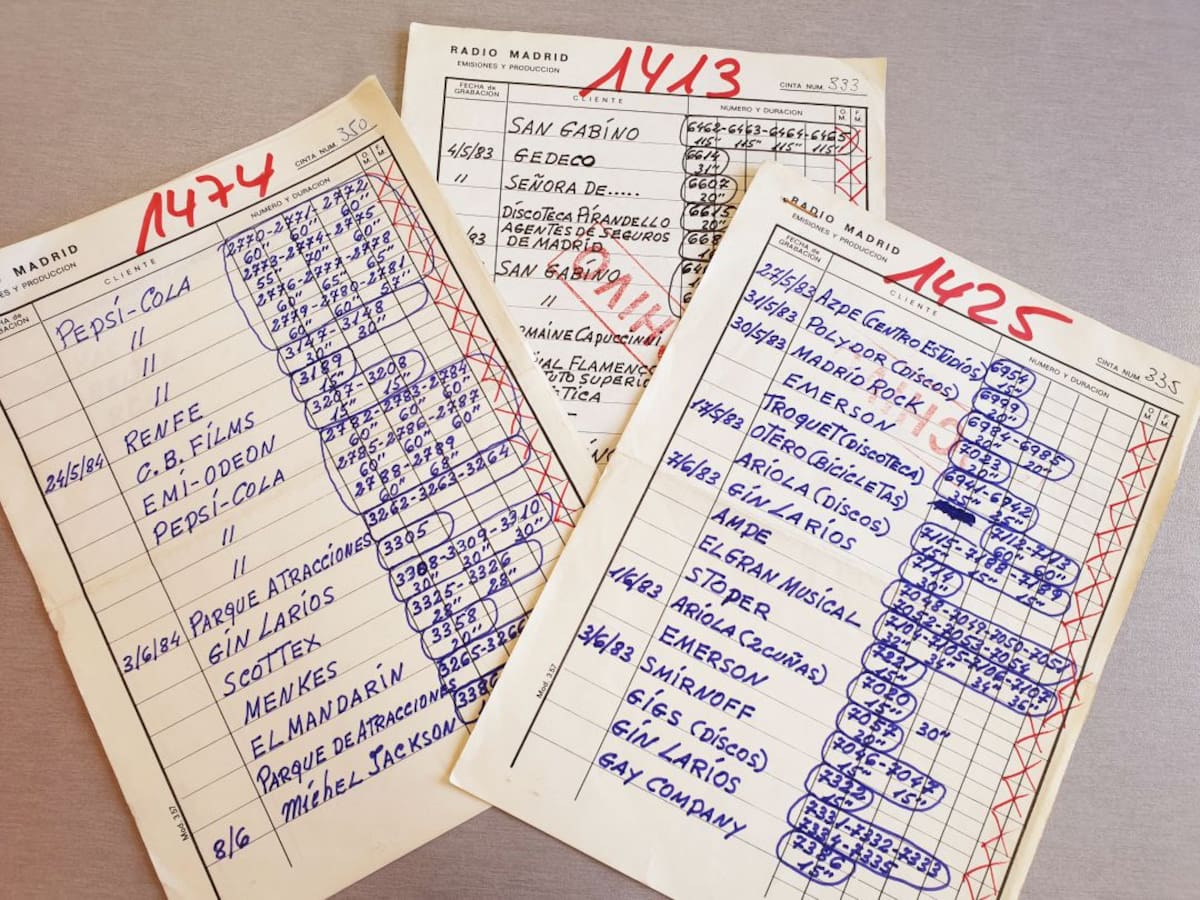 RADIO MADRID
EMISIONES Y PRODUCCION
1413
CINTA NUM. 333
FECHA de GRABACIÓN
CLIENTE
NUMERO Y DURACION
O. M.
F. M.
SAN GABINO 6462-6463-6464-6465
115" 115" 115" 115"
4/5/83 GEDECO 6614
31"
" SEÑORA DE..... 6607
20"
DISCOTECA PIRANDELLO 6615
20"
AGENTES DE SEGUROS
DE MADRID
SAN GABINO
"
CAPUCCINI
FLAMENCO
SUPERIO
MADRID
1474
CINTA NUM. 350
EMISIONES Y PRODUCCION
CLIENTE
NUMERO Y DURACION
F. M.
PEPSI-COLA 2770-2771-2772
60" 60" 60"
" 2773-2774-2775
55" 70" 60"
" 2776-2777-2778
60" 65" 65"
" 2779-2780-2781
60" 60" 57"
RENFE 3147-3148
30" 30"
24/5/84 C.B. FILMS 3189
15"
EMI-ODEON 3207-3208
15" 15"
PEPSI-COLA 2782-2783-2784
60" 60" 60"
" 2785-2786-2787
60" 60" 60"
" 2788-2789
60" 68"
PARQUE ATRACCIONES 3262-3263-3264
3/6/84 GIN LARIOS 3305
SCOTTEX 3308-3309-3310
30" 30" 30"
MENKES 3325-3326
28" 28"
EL MANDARIN 3358
20"
PARQUE DE ATRACCIONES 3265-3266
8/6 MICHEL JACKSON
Mod. 357
RADIO MADRID
EMISIONES Y PRODUCCION
1425
CINTA NUM. 335
FECHA de GRABACIÓN
CLIENTE
NUMERO Y DURACION
O. M.
F. M.
27/5/83 AZPE (CENTRO ESTUDIOS) 6954
15"
31/5/83 POLYDOR (DISCOS) 6999
20"
30/5/83 MADRID ROCK 6984-6985
20" 20"
EMERSON 7023
20"
TROQUET (DISCOTECA) 6941-6942
35"
17/5/83 OTERO (BICICLETAS) 7112-7113
60" 60"
ARIOLA (DISCOS)
15" 15" 15"
7/6/83 GIN LARIOS 7114
30"
AMPE 7048-7049-7050-7051
EL GRAN MUSICAL 7104-7105-7106-7107
34" 34" 36"
STOPER
15"
1/6/83 ARIOLA (2 CUÑAS) 7020
15" 30"
EMERSON 7057
20"
3/6/83 SMIRNOFF 7046-7047
15" 15"
GIGS (DISCOS)
15"
GIN LARIOS 7331-7332-7333
7334-7335
GAY COMPANY 7386
15"
Mod. 357